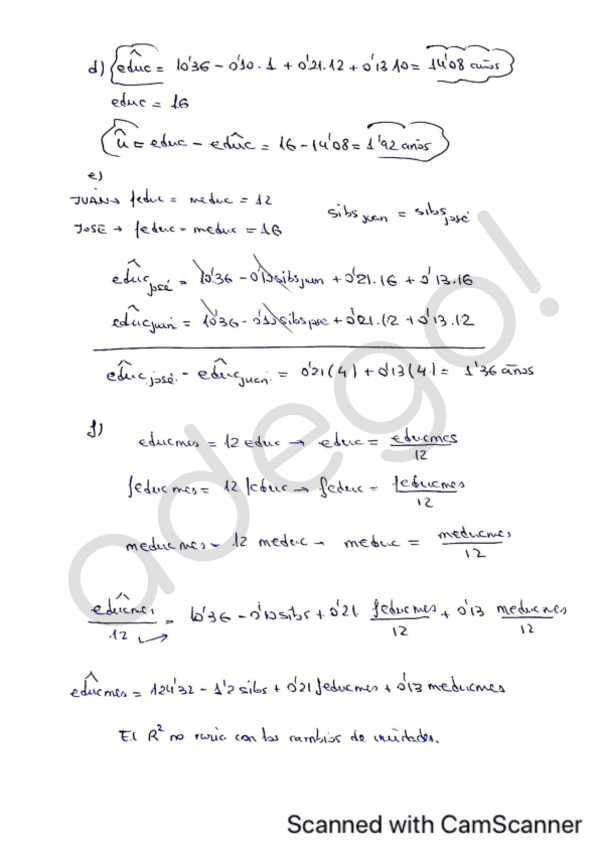 d) educ^ = 10'36 - 0'10.1 + 0'21.12 + 0'13.10 = 14'08 años
educ = 16
û = educ - educ^ = 16 - 14'08 = 1'92 años
e)
JUAN → feduc = meduc = 12
sibs juan = sibs josé
JOSÉ → feduc = meduc = 16
educ^ josé = 10'36 - 0'10 sibs juan + 0'21.16 + 0'13.16
educ^ juan = 10'36 - 0'10 sibs jose + 0'21.12 + 0'13.12
educ^ josé - educ^ juan = 0'21(4) + 0'13(4) = 1'36 años
f)
educmes = 12 educ → educ = educmes / 12
feducmes = 12 feduc → feduc = feducmes / 12
meducmes = 12 meduc → meduc = meducmes / 12
educmes^ / 12 = 10'36 - 0'10 sibs + 0'21 feducmes / 12 + 0'13 meducmes / 12
educmes^ = 124'32 - 1'2 sibs + 0'21 feducmes + 0'13 meducmes
El R² no varia con los cambios de unidades.
adego!
Scanned with CamScanner